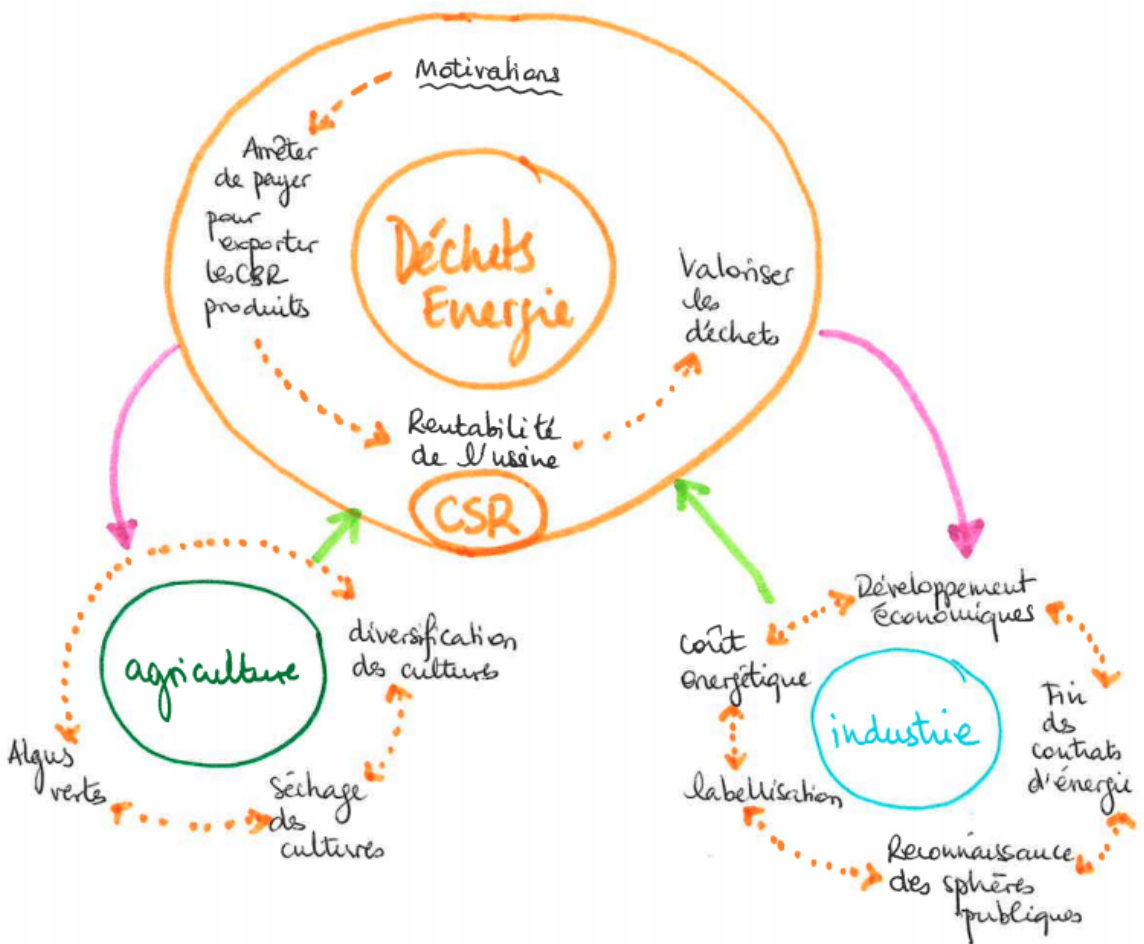 Motivations
Arrêter
de payer
pour
exporter
les CSR
produits
Déchets
Energie
Valoriser
les
déchets
Rentabilité
de l'usine
CSR
agriculture
diversification
des cultures
Séchage
des
cultures
Algues
vertes
industrie
Développement
économiques
Fin
des
contrats
d'énergie
Reconnaissance
des sphères
publiques
labellisation
coût
énergétique